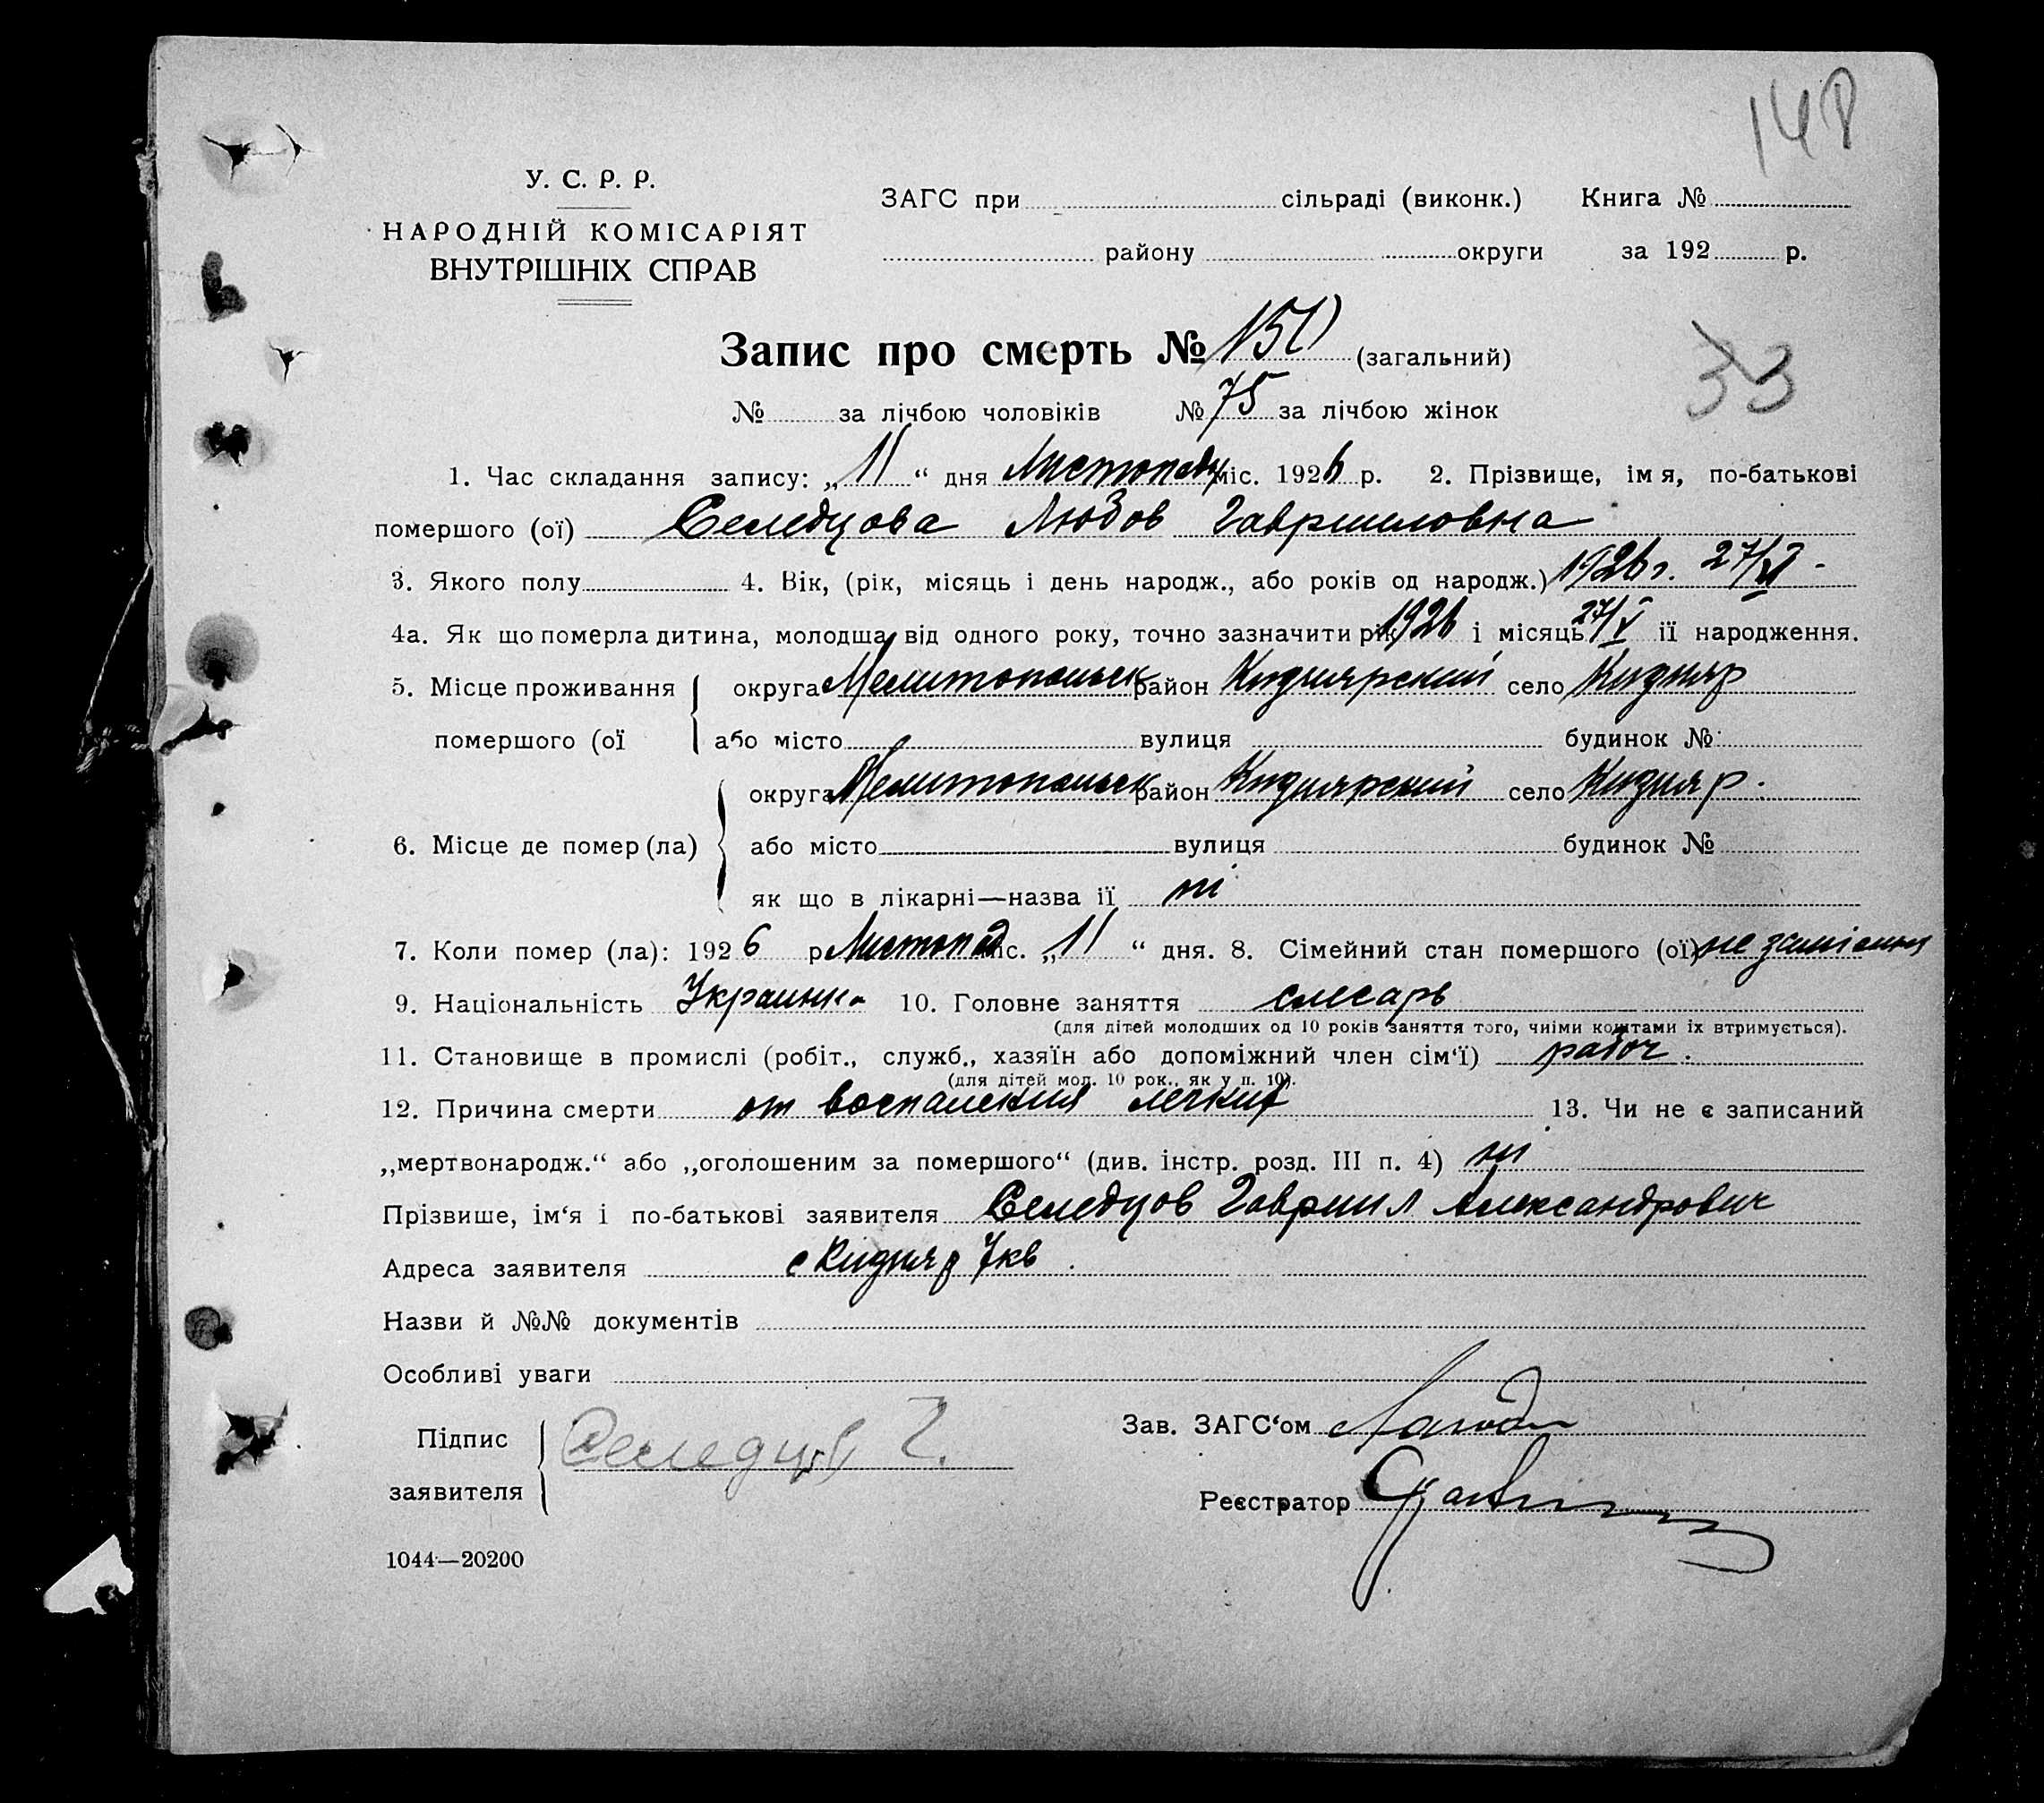 148
У. С. Р. Р.
НАРОДНІЙ КОМІСАРІЯТ
ВНУТРІШНІХ СПРАВ
ЗАГС при сільраді (виконк.) Книга №
району округи за 192 р.
Запис про смерть № 150 (загальний)
33
№ за лічбою чоловіків № 75 за лічбою жінок
1. Час складання запису: „11“ дня Листопаду міс. 1926 р. 2. Прізвище, імя, по-батькові
помершого (ої) Селедцова Любов Гавриловна
3. Якого полу 4. Вік, (рік, місяць і день народж., або років од народж.) 1926 г. 27/VI -
4а. Як що померла дитина, молодша від одного року, точно зазначити рік 1926 і місяць 27/V її народження.
5. Місце проживання округа Мелитопольск район Кизиярский село Кизияр
помершого (ої або місто вулиця будинок №
округа Мелитопольск район Кизиярский село Кизияр.
6. Місце де помер (ла) або місто вулиця будинок №
як що в лікарні—назва ії ні
7. Коли помер (ла): 1926 р Листопад міс. „11“ дня. 8. Сімейний стан помершого (ої) не
9. Національність Украинка 10. Головне заняття слесарь
(для дітей молодших од 10 років заняття того, чиіми коштами іх втримується).
11. Становище в промислі (робіт., служб., хазяїн або допоміжний член сім‘ї) рабоч.
(для дітей мол. 10 рок., як у п. 10).
12. Причина смерти от воспаления легких 13. Чи не є записаний
„мертвонародж.“ або „оголошеним за помершого“ (див. інстр. розд. III п. 4) ні
Прізвище, ім‘я і по-батькові заявителя Селедцов Гавриил Александрович
Адреса заявителя с Кизияр 7кв.
Назви й №№ документів
Особливі уваги
Підпис Селедцов Г.
заявителя
Зав. ЗАГС‘ом
Реєстратор
1044—20200